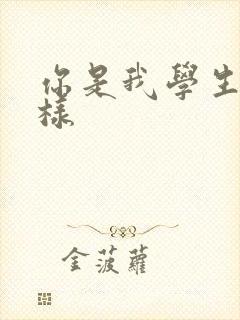 你是我學生
樣
金菠蘿